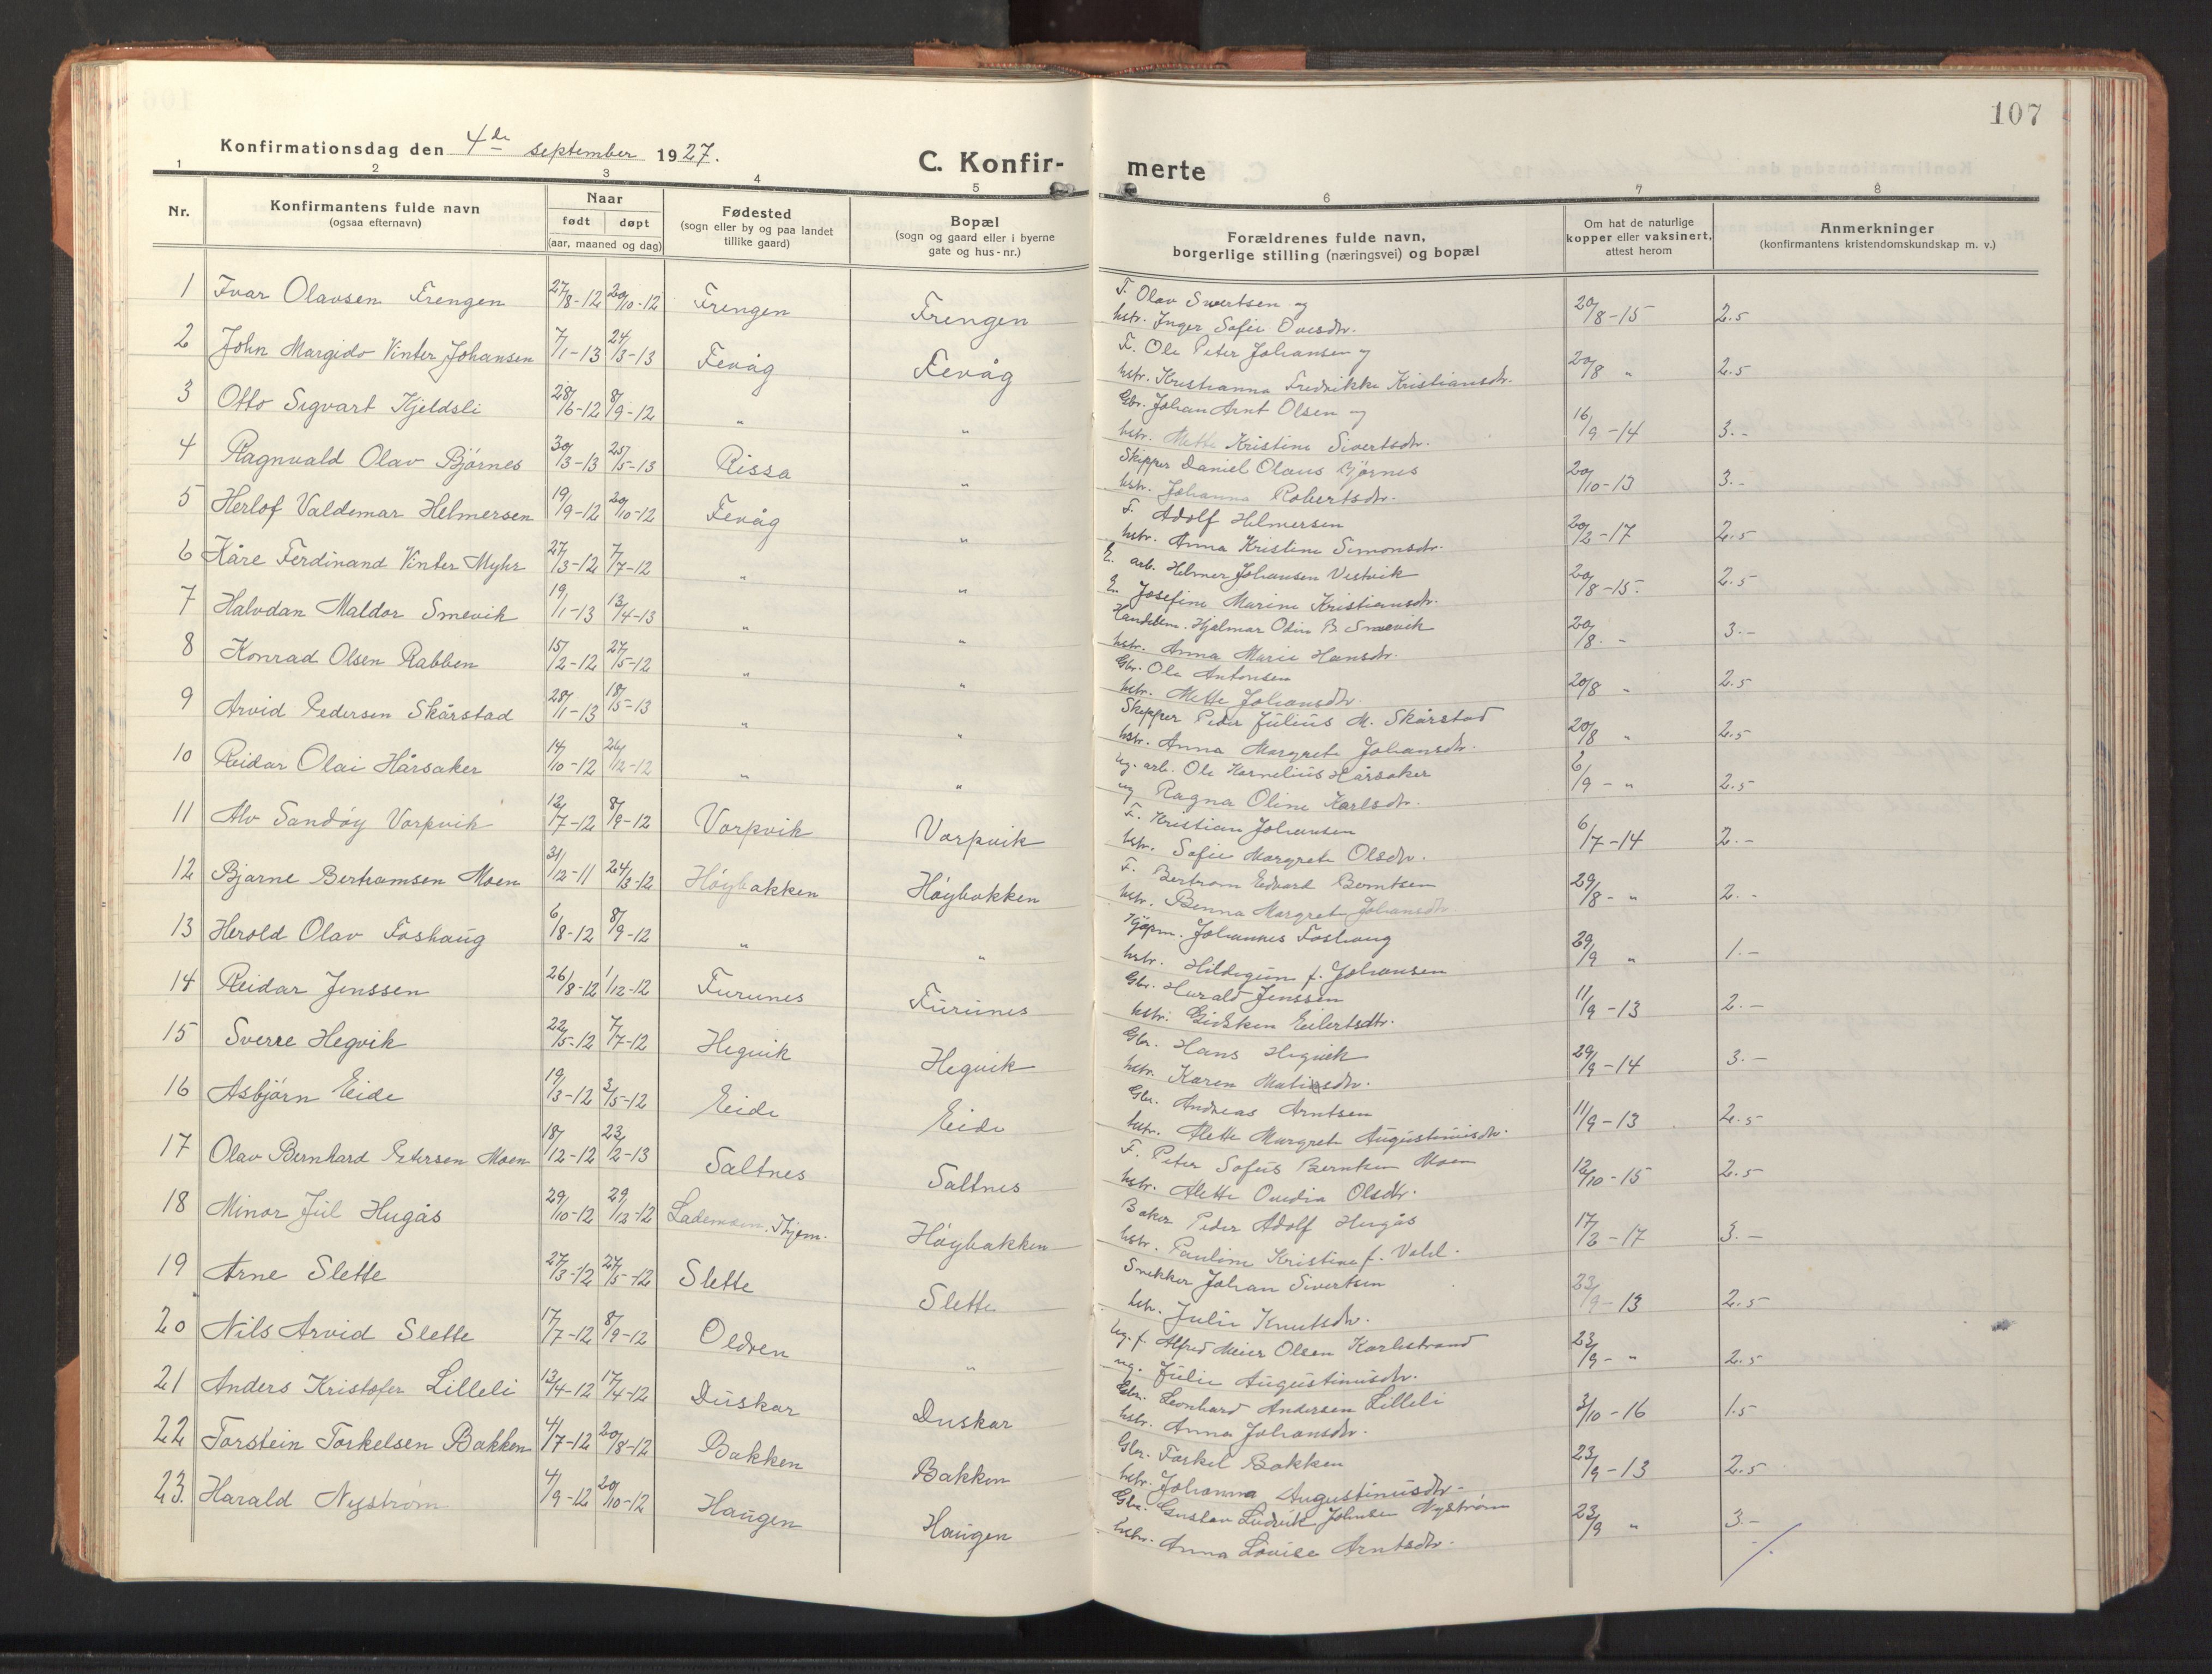 107
Konfirmationsdag den 4de september 1927.
C. Konfir-merte
1 2 3 4 5 6 7 8
Nr.
Konfirmantens fulde navn
(ogsaa efternavn)
Naar
født døpt
(aar, maaned og dag)
Fødested
(sogn eller by og paa landet
tillike gaard)
Bopæl
(sogn og gaard eller i byerne
gate og hus-nr.)
Forældrenes fulde navn,
borgerlige stilling (næringsvei) og bopæl
Om hat de naturlige
kopper eller vaksinert,
attest herom
Anmerkninger
(konfirmantens kristendomskundskap m. v.)
1 Ivar Olavsen Frengen 27/8-12 20/10-12 Frengen Frengen F. Olav Sivertsen og 20/8-15 2.5
hstr. Inger Sofie Ovesdtr.
2 John Margido Vinter Johansen 7/1-13 24/3-13 Fevåg Fevåg F. Ole Peter Johansen og 20/8 " 2.5
hstr. Kristianna Fredrikke Kristiansdtr.
3 Otto Sigvart Kjeldsli 28/6-12 8/9-12 " " Gbr. Johan Arnt Olsen og 16/9-14 3.-
hstr. Mette Kristine Sivertsdtr.
4 Ragnvald Olav Bjørnes 30/3-13 25/5-13 Rissa " Skipper Daniel Olaus Bjørnes 20/10-13 3.-
hstr. Johanna Robertsdtr.
5 Herlof Valdemar Helmersen 19/9-12 20/10-12 Fevåg " F. Adolf Helmersen 20/2-17 2.5
hstr. Anna Kristine Simonsdtr.
6 Kåre Ferdinand Vinter Myhr 27/3-12 7/7-12 " " E. arb. Helmer Johansen Vestvik 20/8-15. 2.5
E. Josefine Marine Kristiansdtr.
7 Halvdan Maldor Smevik 19/1-13 13/4-13 " " Handelsm. Hjalmar Odin B. Smevik 20/8. - 3.-
hstr. Anna Marie Hansdtr.
8 Konrad Olsen Rabben 15/2-12 27/5-12 " " Gbr. Ole Antonsen 20/8 " 2.5
hstr. Mette Johansdtr.
9 Arvid Pedersen Skårstad 28/1-13 18/5-13 " " Skipper Peder Julius M. Skårstad 20/8 " 2.5
hstr. Anna Margrete Johansdtr.
10 Reidar Olai Hårsaker 14/10-12 26/12-12 " " Ug. arb. Ole Kornelius Hårsaker 6/9 - " 2.5
ug Ragna Oline Karlsdtr.
11 Alv Sandøy Vorpvik 12/7-12 8/9-12 Vorpvik Vorpvik F. Kristian Johansen 6/7-14 2.-
hstr. Sofie Margrete Olsdtr.
12 Bjarne Bertramsen Moen 31/12-11 24/3-12 Høybakken Høybakken F. Bertram Edvard Berntsen 29/8- " 2.-
hstr. Benna Margrete Johansdtr.
13 Herold Olav Foshaug 6/8-12 8/9-12 " " Kjøpm. Johannes Foshaug 29/9 " 1.-
hstr. Hildegun f. Johansen
14 Reidar Jenssen 26/8-12 1/12-12 Furunes Furunes Gbr. Harald Jenssen 11/9-13 2.-
hstr. Gidsken Eilertsdtr.
15 Sverre Hegvik 22/5-12 7/7-12 Hegvik Hegvik Gbr. Hans Hegvik 29/9-14 3.-
hstr. Karen
16 Asbjørn Eide 19/3-12 3/5-12 Eide Eide Gbr. Andreas Arntsen 11/9-13 2.5
hstr. Alette Margrete Augustinusdtr.
17 Olav Bernhard Petersen Moen 18/12-12 23/2-13 Saltnes Saltnes F. Peter Sofus Berntsen Moen 12/10-15 2.5
hstr. Alette Ovedia Olsdtr.
18 Minor Jul Hugås 29/10-12 29/12-12 Lademoen. Thjem. Høybakken Baker Peder Adolf Hugås 17/2-17 3.-
hstr. Pauline Kristine f. Vold.
19 Arne Slette 27/3-12 27/5-12 Slette Slette Snekker Johan Sivertsen 23/9-13 2.5
hstr. Julie Knutsdtr.
20 Nils Arvid Slette 17/7-12 8/9-12 Oldren " Ug. f. Alfred Meier Olsen Karlestrand 23/9- " 2.5
ug. Julie Augustinusdtr.
21 Anders Kristofer Lilleli 13/4-12 17/4-12 Duskar Duskar Gbr. Leonhard Andersen Lilleli 3/10-16 1.5
hstr. Anna Johansdtr.
22 Torstein Torkelsen Bakken 4/7-12 20/8-12 Bakken Bakken Gbr. Torkel Bakken 23/9-13 2.5
hstr. Johanna Augustinusdtr.
23. Harald Nystrøm 4/9-12 20/10-12 Haugen Haugen Gbr. Gustav Ludvik Johnsen Nystrøm 23/9 " 3.-
hstr. Anna Lovise Arntsdtr.